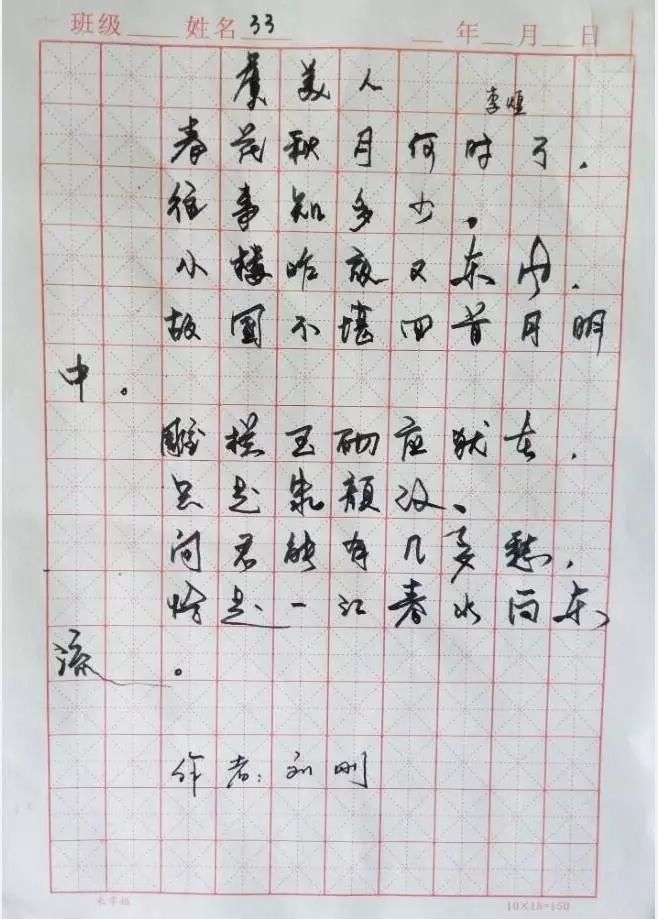 班级 姓名 33 年 月 日
虞美人 李煜
春花秋月何时了，
往事知多少。
小楼昨夜又东风，
故国不堪回首月明
中。
雕栏玉砌应犹在，
只是朱颜改、
问君能有几多愁，
恰是一江春水向东
流。
作者：刘刚
米字格
10×15=150